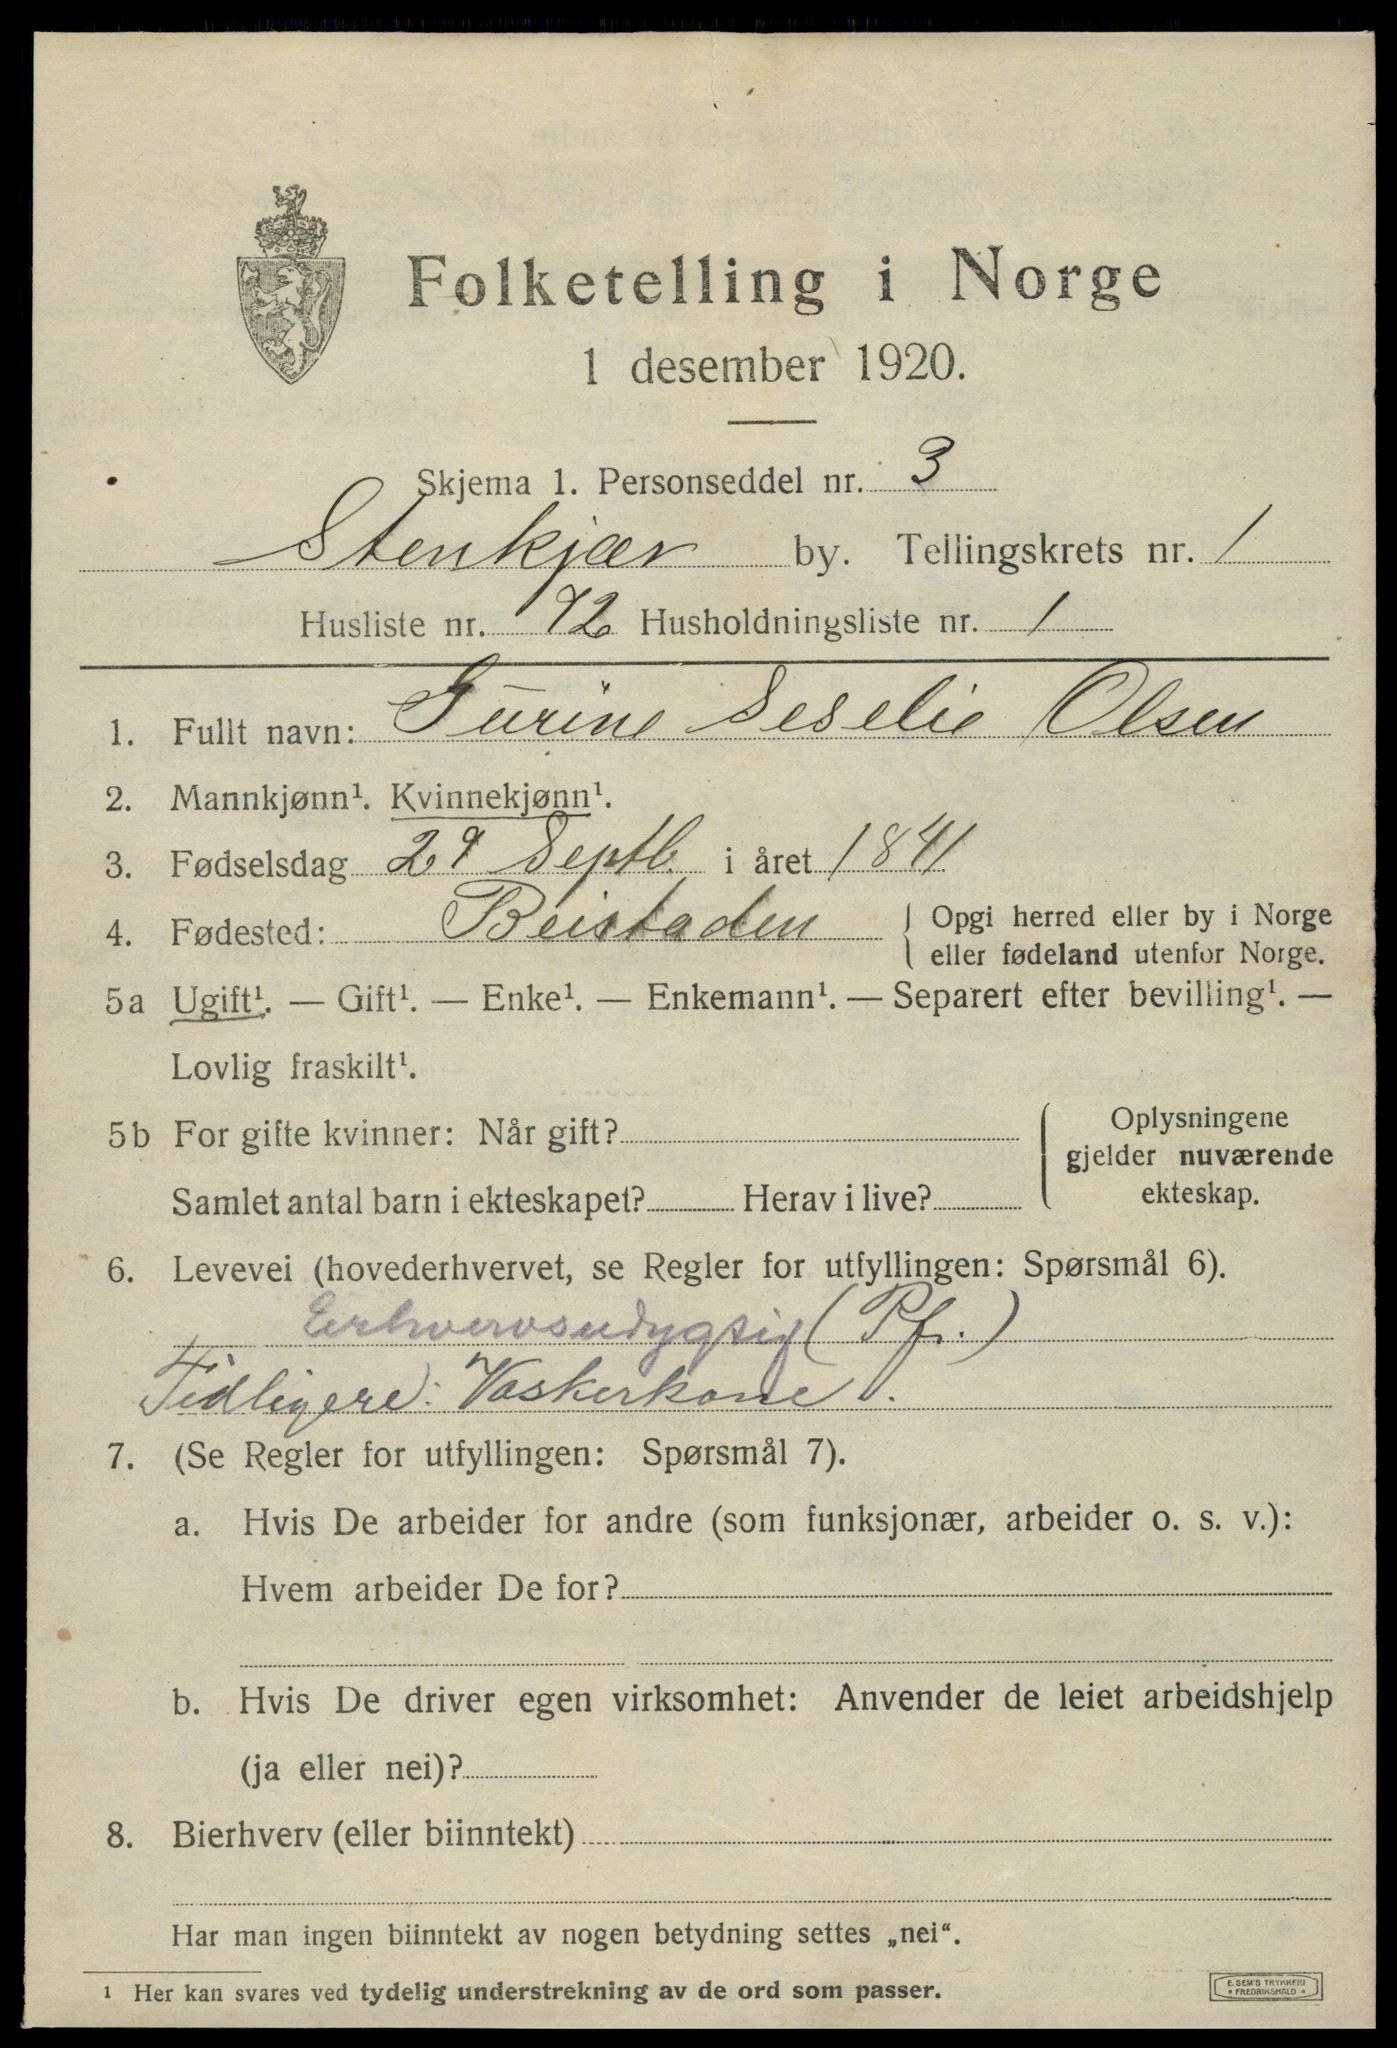 Folketelling i Norge
1 desember 1920.
Skjema 1. Personseddel nr. 3
Stenkjær by. Tellingskrets nr. 1
Husliste nr. 72 Husholdningsliste nr. 1
1. Fullt navn: Gurine Seselie Olsen
2. Mannkjønn¹. Kvinnekjønn¹.
3. Fødselsdag 29 Septb. i året 1841
4. Fødested: Beistaden { Opgi herred eller by i Norge
eller fødeland utenfor Norge.
5a Ugift¹. — Gift¹. — Enke¹. — Enkemann¹. — Separert efter bevilling¹. —
Lovlig fraskilt¹.
5b For gifte kvinner: Når gift? { Oplysningene
gjelder nuværende
Samlet antal barn i ekteskapet? Herav i live? ekteskap.
6. Levevei (hovederhvervet, se Regler for utfyllingen: Spørsmål 6).
Erhvervsudygtig (Pf.)
Tidligere: Vaskerkone.
7. (Se Regler for utfyllingen: Spørsmål 7).
a. Hvis De arbeider for andre (som funksjonær, arbeider o. s. v.):
Hvem arbeider De for?
b. Hvis De driver egen virksomhet: Anvender de leiet arbeidshjelp
(ja eller nei)?
8. Bierhverv (eller biinntekt)
Har man ingen biinntekt av nogen betydning settes „nei“.
¹ Her kan svares ved tydelig understrekning av de ord som passer.
E. SEM'S TRYKKERI
FREDRIKSHALD